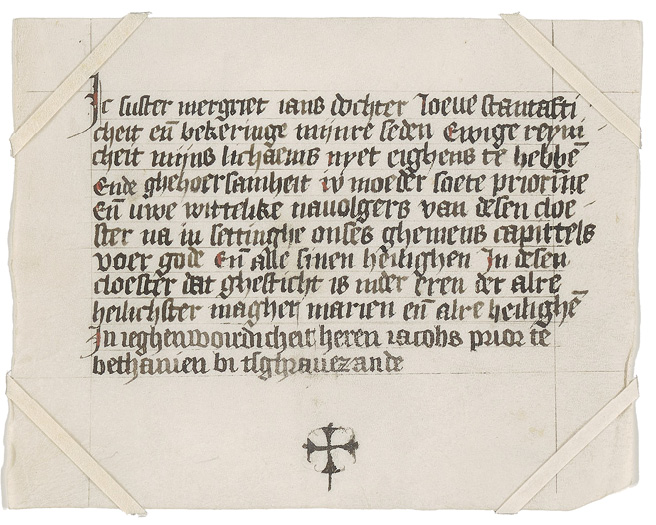 Ic suster mergriet ians dochter Loeue stantafti
cheit eñ bekeringe mijnre seden Ewige reyni
cheit mijns lichaems nyet eighens te hebbē
Ende ghehoersamheit iv moeder saete priorīne
Eñ uwe wittelike nauolgers van desen cloe
ster na in settinghe onses ghemens capittels
voer gode Eñ alle sinen heilighen In desen
cloester dat ghesticht is inder eren der alre
heilichster maghet marien eñ alre heilighē
In ieghenwoirdicheit heren iacobs prior te
bethanien bi tsghrauezande